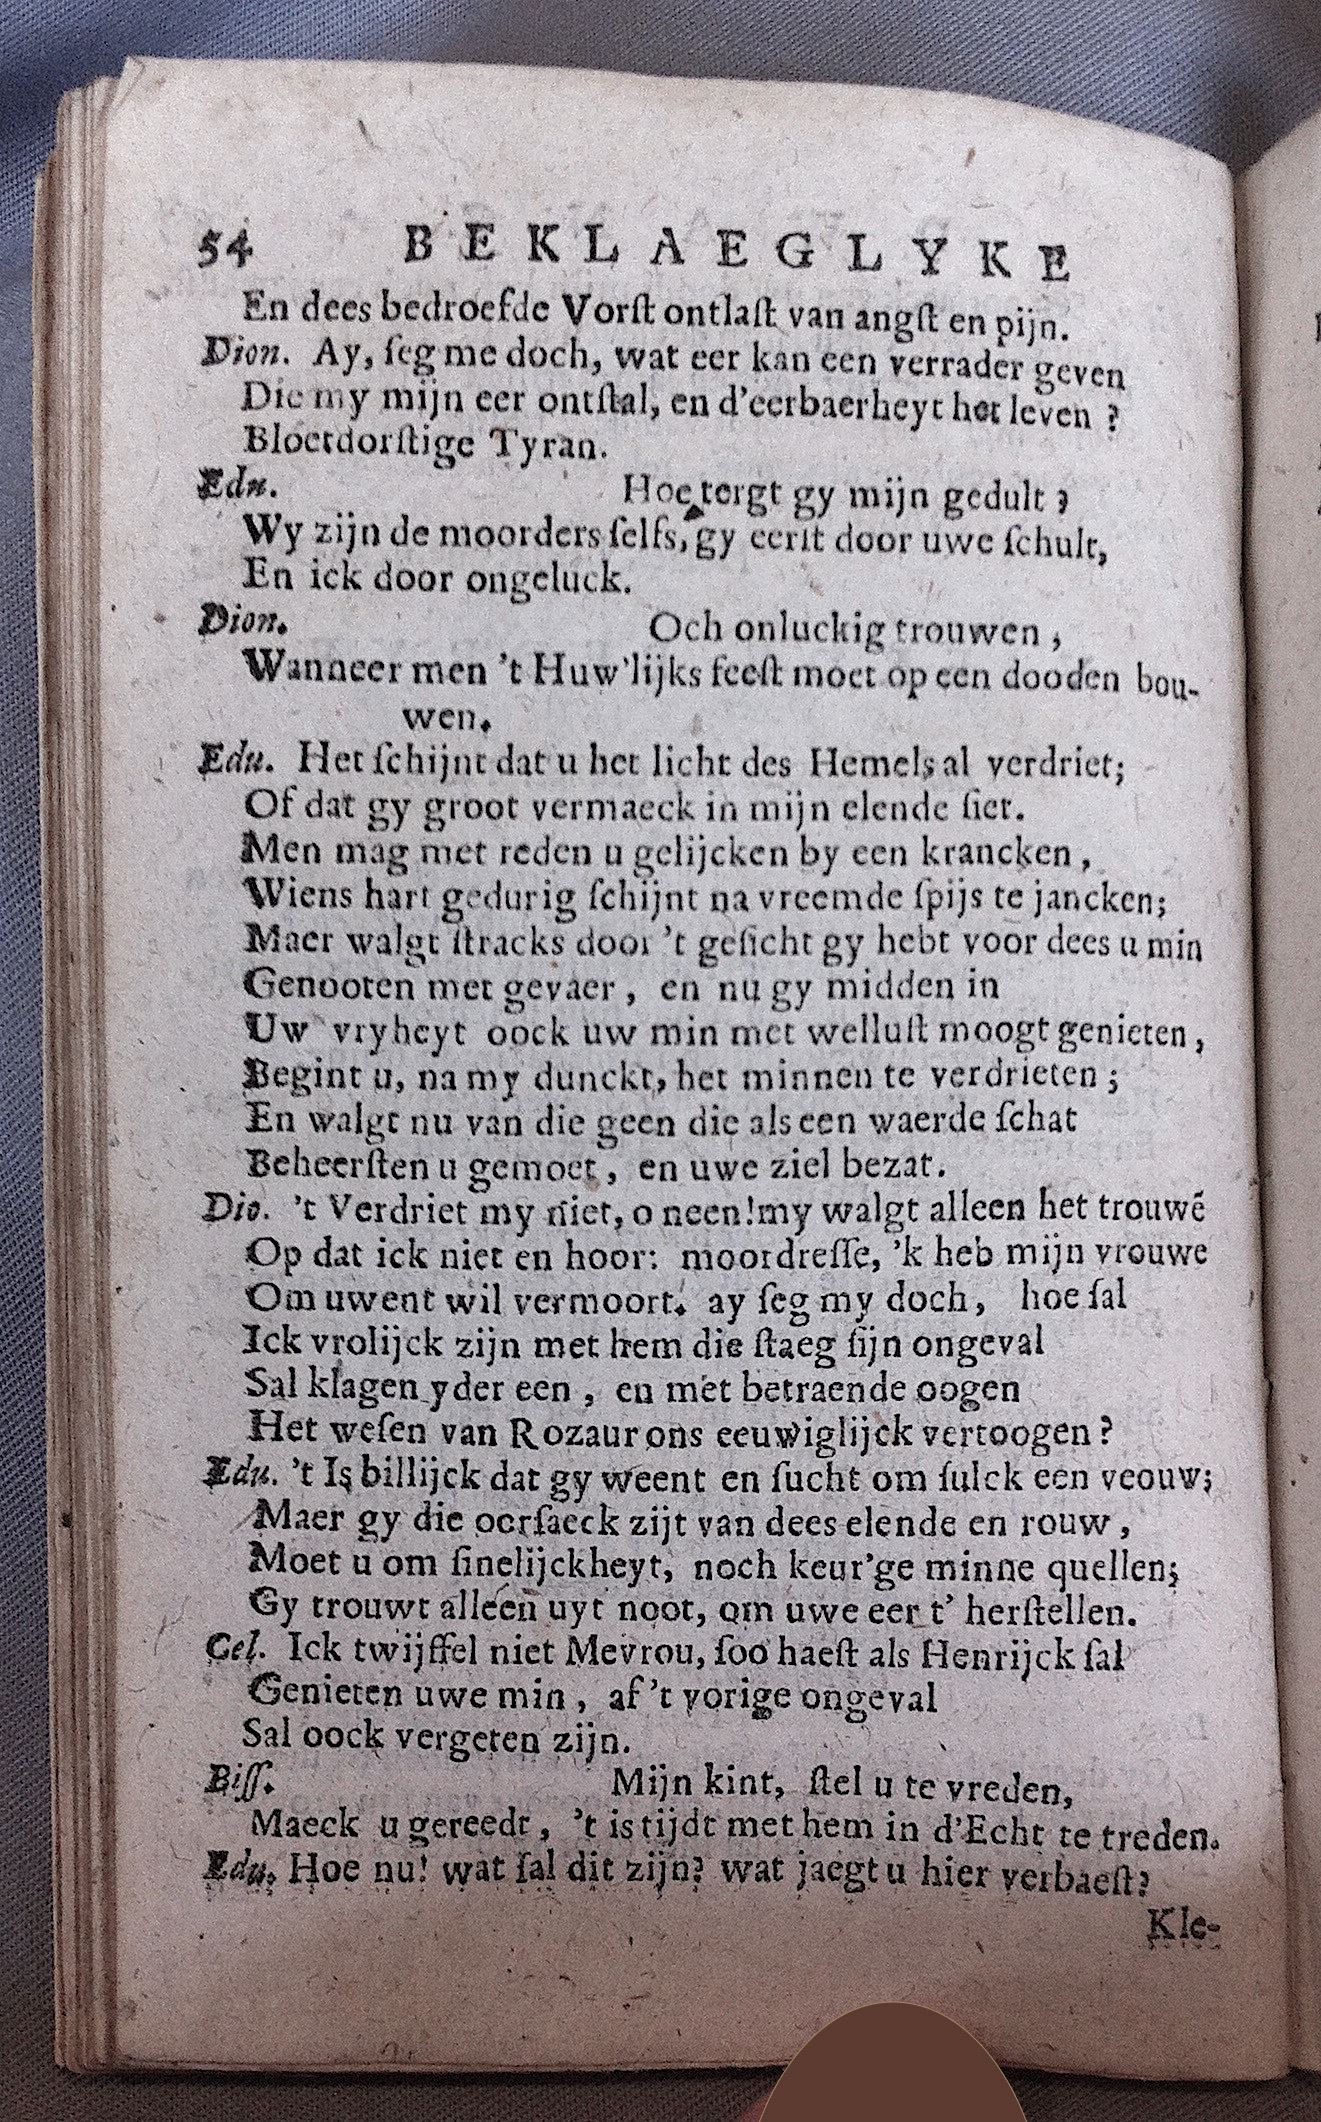 54 BEKLAEGLYKE
En dees bedroefde Vorſt ontlaſt van angſt en pijn.
Dion. Ay, ſeg me doch, wat eer kan een verrader geven
Die my mijn eer ontſtal, en d'eerbaerheyt het leven ?
Bloetdorſtige Tyran.
Edu. Hoe tergt gy mijn gedult ?
Wy zijn de moorders ſelfs, gy eerſt door uwe ſchult,
En ick door ongeluck.
Dion. Och onluckig trouwen ,
Wanneer men 't Huw'lijks feeſt moet op een dooden bou-
wen.
Edu. Het ſchijnt dat u het licht des Hemels al verdriet;
Of dat gy groot vermaeck in mijn elende ſiet.
Men mag met reden u gelijcken by een krancken ,
Wiens hart gedurig ſchijnt na vreemde ſpijs te jancken;
Maer walgt ſtracks door 't geſicht gy hebt voor dees u min
Genooten met gevaer , en nu gy midden in
Uw vryheyt oock uw min met welluſt moogt genieten ,
Begint u, na my dunckt, het minnen te verdrieten ;
En walgt nu van die geen die als een waerde ſchat
Beheerſten u gemoet , en uwe ziel bezat.
Dio. 't Verdriet my niet, o neen! my walgt alleen het trouwẽ
Op dat ick niet en hoor: moordreſſe, 'k heb mijn vrouwe
Om uwent wil vermoort. ay ſeg my doch, hoe ſal
Ick vrolijck zijn met hem die ſtaeg ſijn ongeval
Sal klagen yder een , en met betraende oogen
Het weſen van Rozaur ons eeuwiglijck vertoogen ?
Edu. 't Is billijck dat gy weent en ſucht om ſulck een veouw;
Maer gy die oorſaeck zijt van dees elende en rouw ,
Moet u om ſinelijckheyt, noch keur'ge minne quellen;
Gy trouwt alleen uyt noot, om uwe eer t' herſtellen.
Cel. Ick twijffel niet Mevrou, ſoo haeſt als Henrijck ſal
Genieten uwe min , af 't vorige ongeval
Sal oock vergeten zijn.
Biſſ. Mijn kint, ſtel u te vreden,
Maeck u gereedt , 't is tijdt met hem in d'Echt te treden.
Edu. Hoe nu! wat ſal dit zijn? wat jaegt u hier verbaeſt?
Kle-